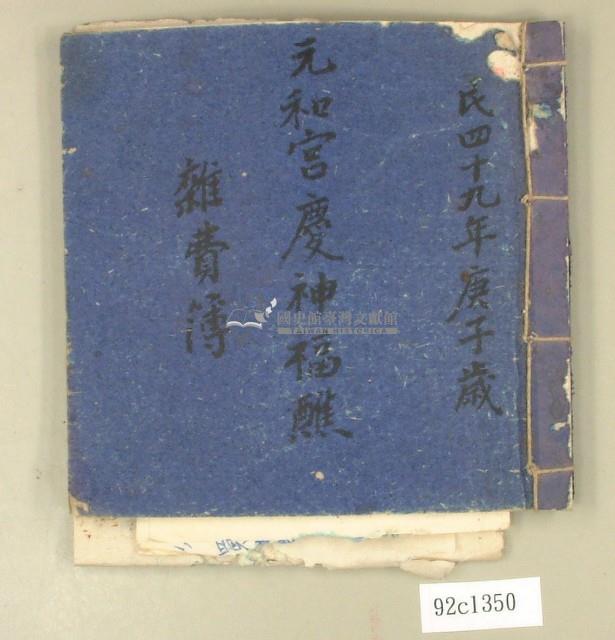 民四十九年庚子歲
元和宮慶神福醮
雜費簿
國史館臺灣文獻館
TAIWAN HISTORICA
92c1350